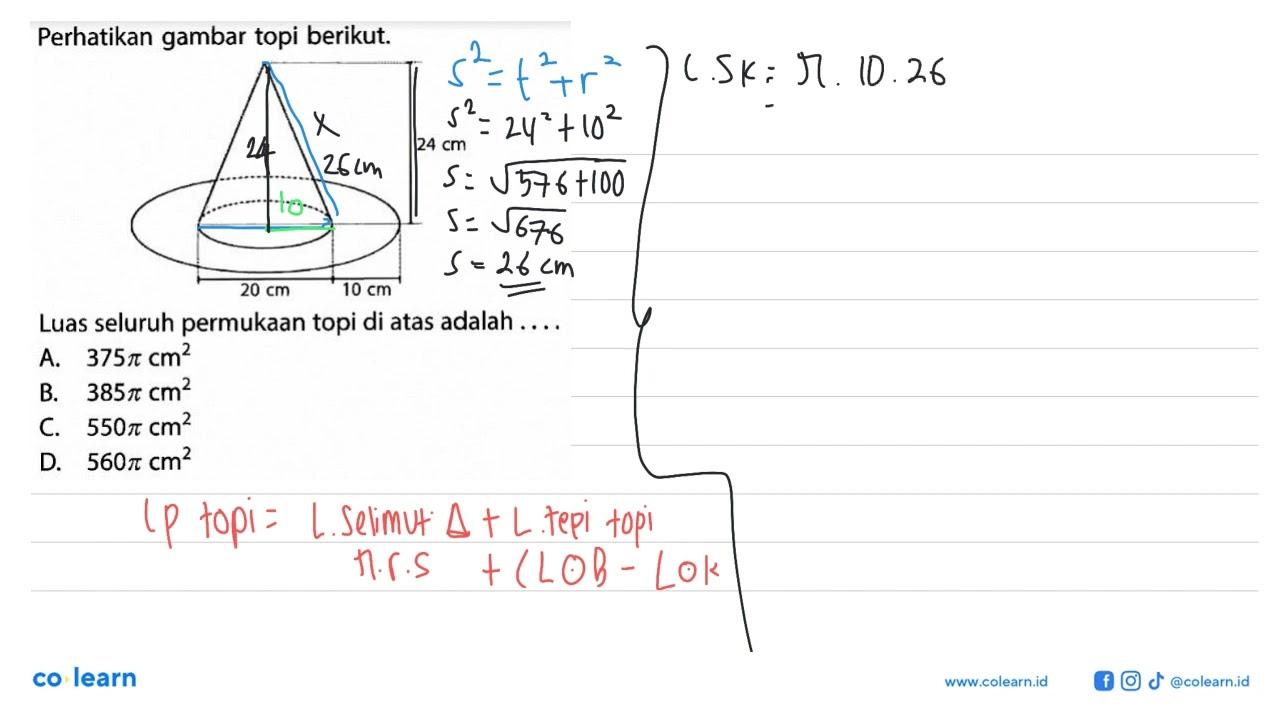 Perhatikan gambar topi berikut.
24
x
26 cm
10
24 cm
20 cm
10 cm
s² = t² + r²
s² = 24² + 10²
s = √576+100
s = √676
s = 26 cm
L.SK = π . 10 . 26
Luas seluruh permukaan topi di atas adalah ....
A. 375π cm²
B. 385π cm²
C. 550π cm²
D. 560π cm²
Lp topi = L.selimut Δ + L.tepi topi
π.r.s + (LOB - LOK
co learn
www.colearn.id
@colearn.id